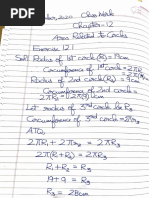 2020 Class Work
Chapter-12
Area Related to Circles
Exercise 12.1
Sol1 Radius of 1st circle (R1) = 19cm
Circumference of 1st circle = 2πR
Radius of 2nd circle (R2) = 9cm
Circumference of 2nd circle
Let radius of 3rd circle be R3
ATQ,
2πR1 + 2πR2 = 2πR3
2π(R1+R2) = 2πR3
R1 + R2 = R3
19 + 9 = R3
R3 = 28cm